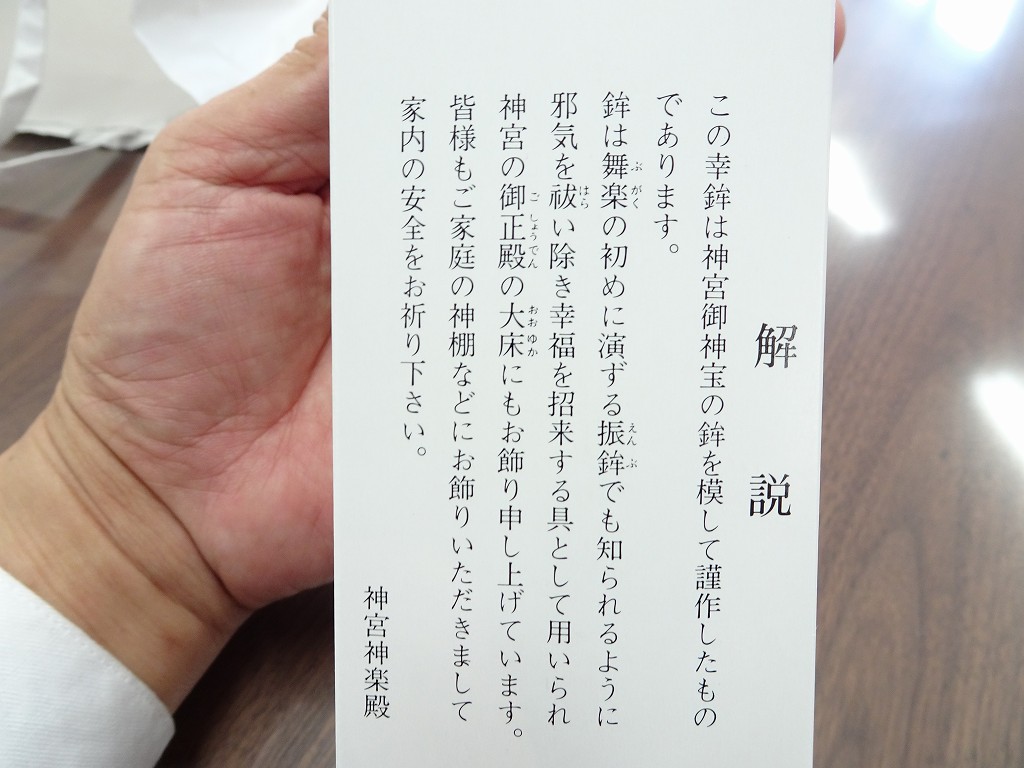 解説
この幸鉾は神宮御神宝の鉾を模して謹作したもの
であります。
鉾は舞楽の初めに演ずる振鉾でも知られるように
邪気を祓い除き幸福を招来する具として用いられ
神宮の御正殿の大床にもお飾り申し上げています。
皆様もご家庭の神棚などにお飾りいただきまして
家内の安全をお祈り下さい。
神宮神楽殿